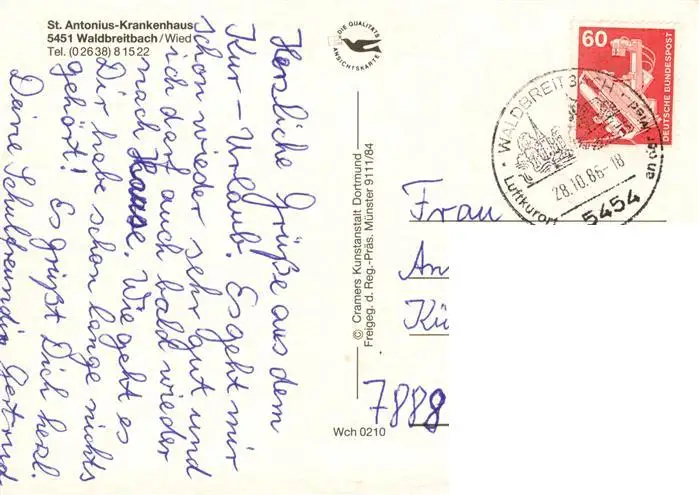 St. Antonius-Krankenhaus
5451 Waldbreitbach/Wied
Tel. (02638) 81522
Herzliche Grüße aus dem
Kur-Urlaub. Es geht mir
schon wieder sehr gut und
ich darf auch bald wieder
nach Hause. Wie geht es
Dir habe schon lange nichts
gehört! Es grüßt Dich herzl.
Deine Schulfreundin Gertrud
DIE QUALITÄTS
ANSICHTSKARTE
© Cramers Kunstanstalt Dortmund
Freigeg. d. Reg.-Präs. Münster 9111/84
Wch 0210
60
DEUTSCHE BUNDESPOST
WALDBREIT
an der Wied
28.10.86-18
Luftkurort
5454
Frau
An
Kü
7888